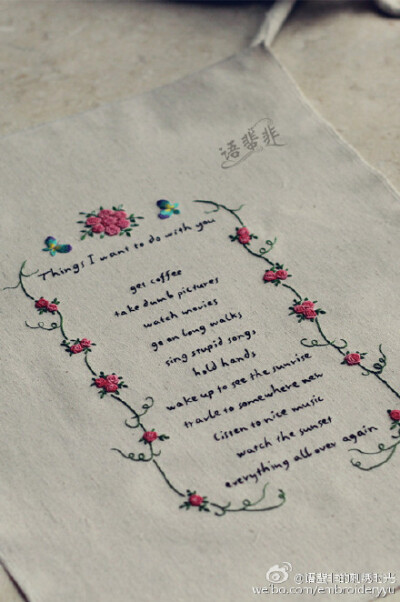 语翡非
Things I want to do with you
get coffee
take dumb pictures
watch movies
go on long walks
sing stupid songs
hold hands
wake up to see the sunrise
travle to somewhere new
Listen to nice music
watch the sunset
everything all over again
weibo.com/embroideryyu